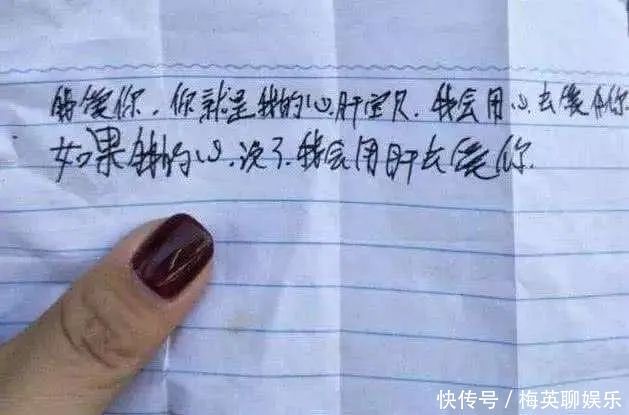 爱你.你就是我的心肝宝贝.我会用心去爱你
如果我的心.没了我会用肝去爱你.
快传号/梅英聊娱乐